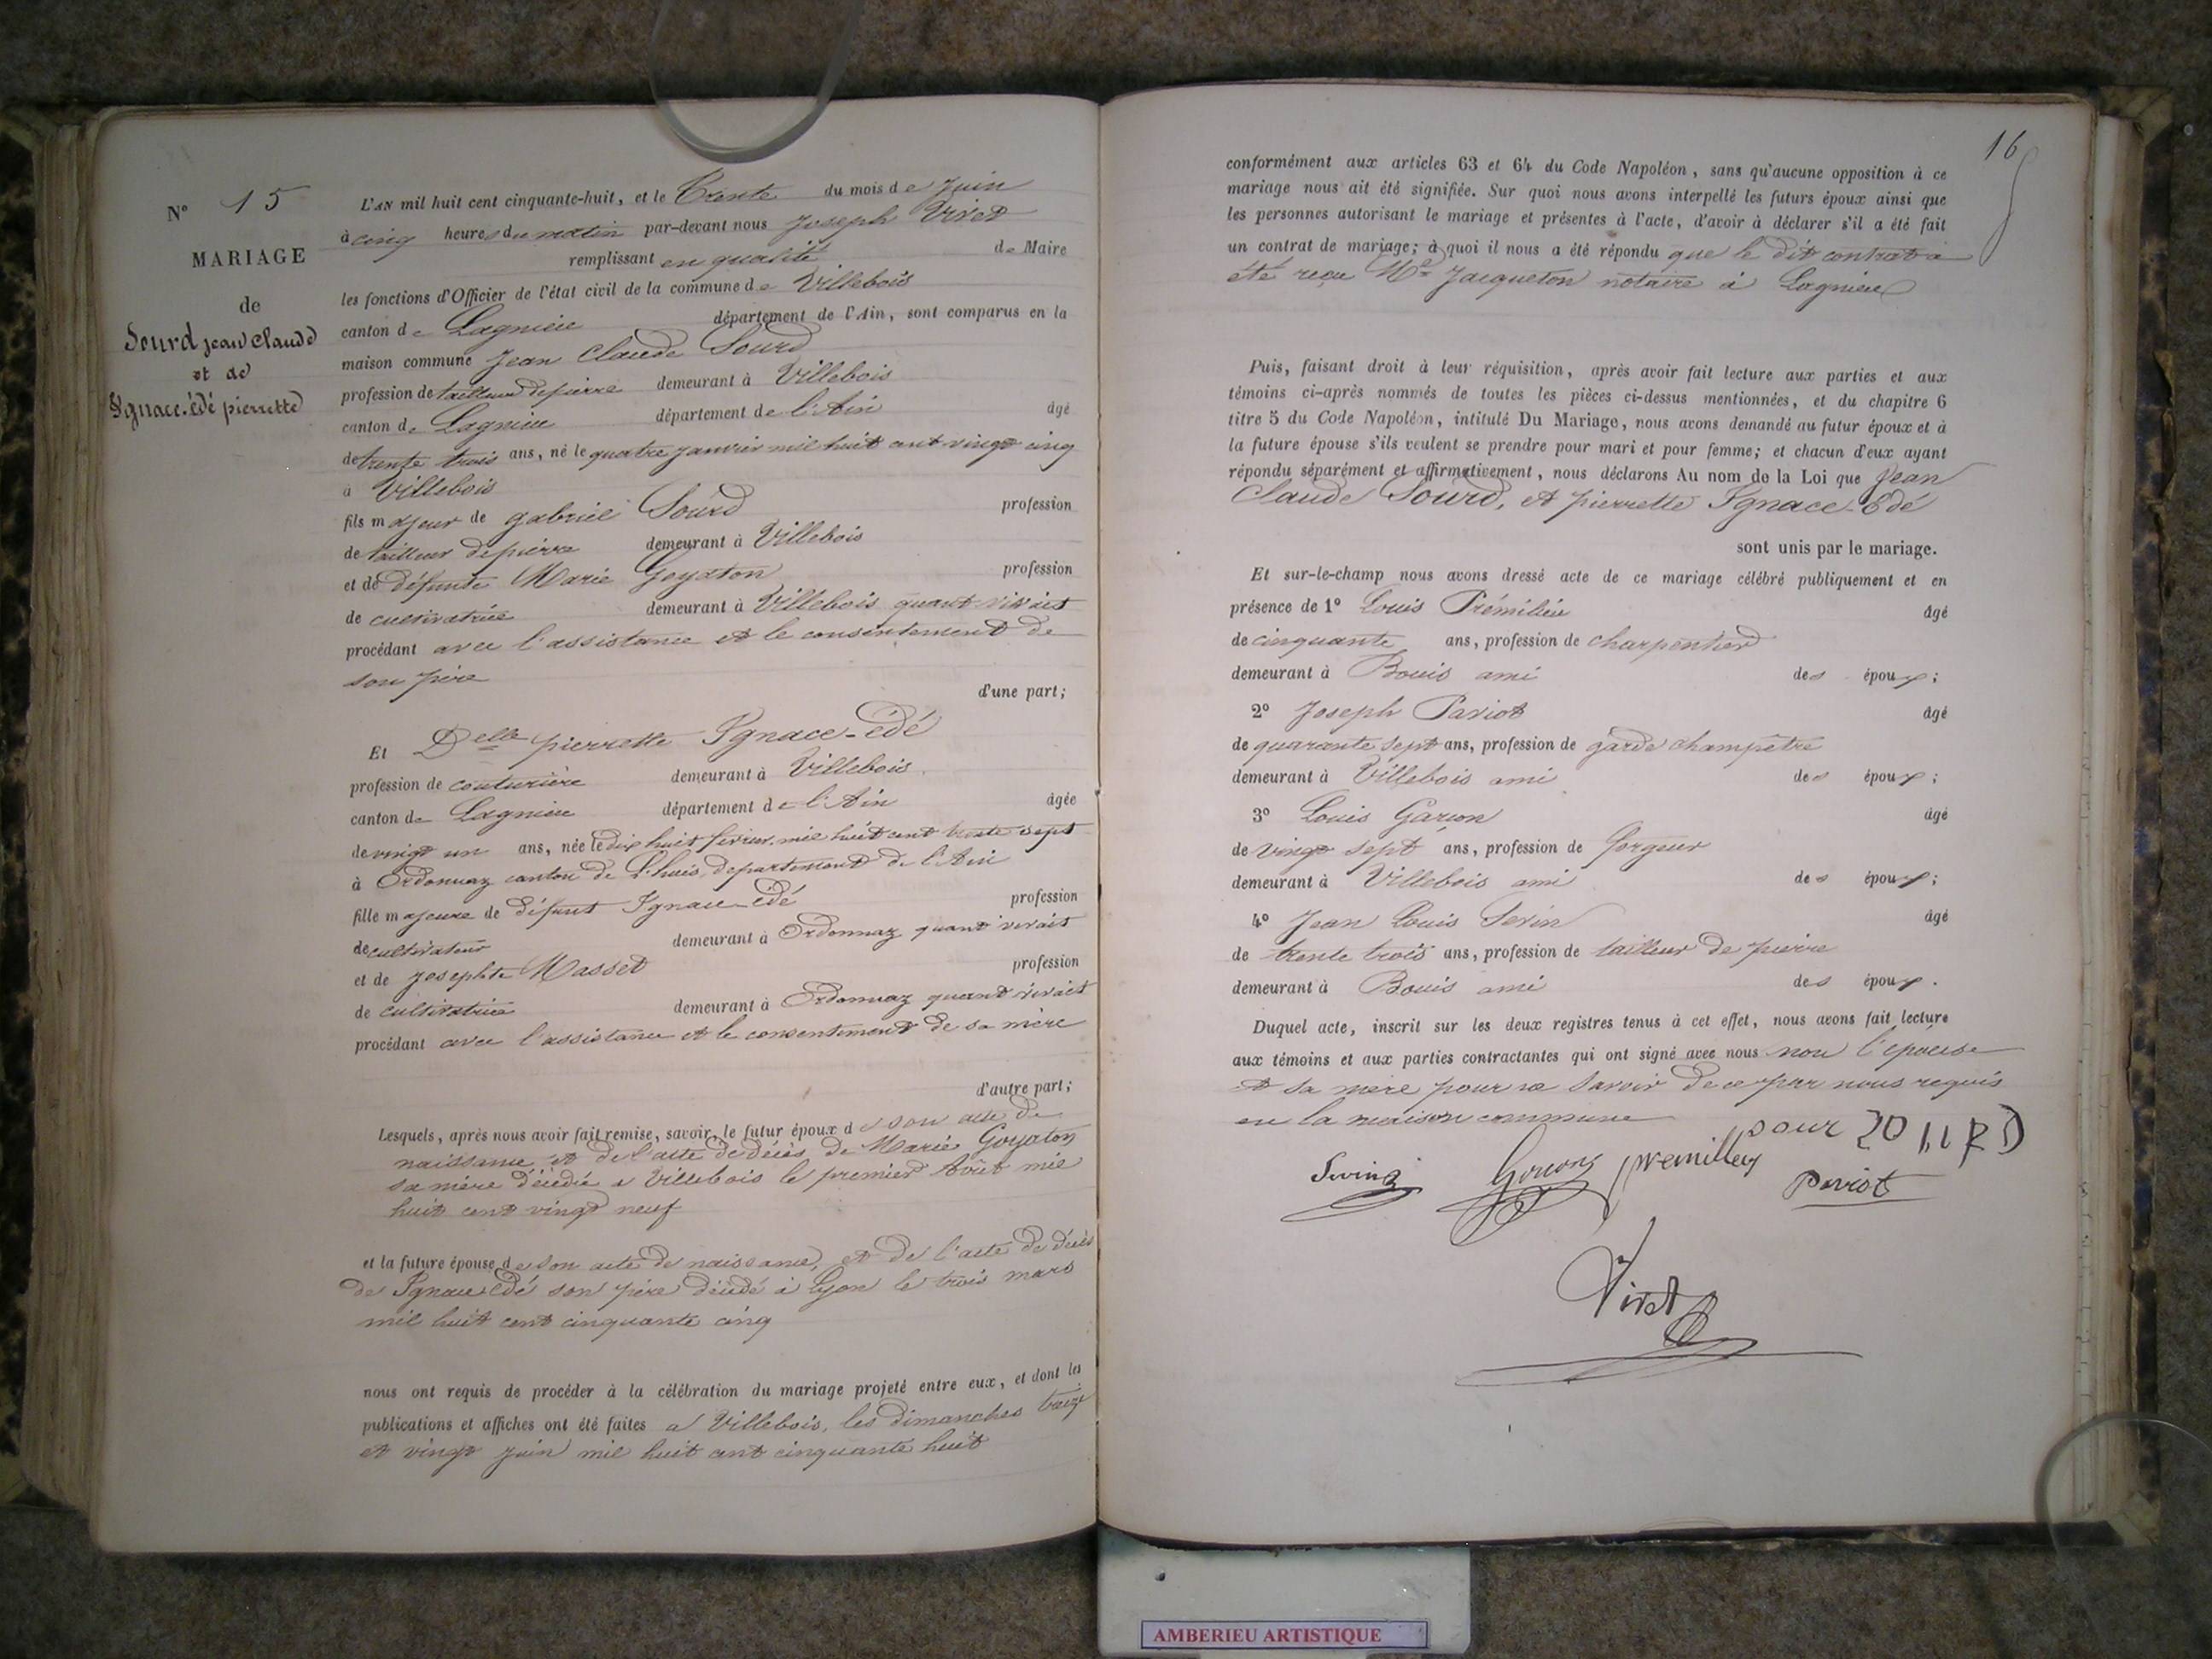 N° 15
MARIAGE
de
Sourd jean claude
et de
Ignace-édé pierrette
L'AN mil huit cent cinquante-huit, et le Trente du mois de Juin
à cinq heures du matin par-devant nous Joseph Viret
remplissant en qualité de Maire
les fonctions d'Officier de l'état civil de la commune de Villebois
canton de Lagnieu département de l'Ain, sont comparus en la
maison commune Jean Claude Sourd
profession de tailleur de pierre demeurant à Villebois
canton de Lagnieu département de l'Ain âgé
de trente trois ans, né le quatre janvier mil huit cent vingt cinq
à Villebois
fils majeur de gabriel Sourd profession
de tailleur de pierre demeurant à Villebois
et de défunte Marie Goyaton profession
de cultivatrice demeurant à Villebois quant vivait
procédant avec l'assistance et le consentement de
son père
d'une part;
Et Delle pierrette Ignace-édé
profession de couturière demeurant à Villebois
canton de Lagnieu département de l'Ain âgée
de vingt un ans, née le dix huit fevrier mil huit cent trente sept
à Ordonnaz canton de L'huis, departement de l'Ain
fille majeure de défunt Ignace-édé profession
de cultivateur demeurant à Ordonnaz quant vivait
et de josephte Masset profession
de cultivatrice demeurant à Ordonnaz quand vivait
procédant avec l'assistance et le consentement de sa mère
d'autre part;
Lesquels, après nous avoir fait remise, savoir, le futur époux de son acte de
naissance et de l'acte de décès de Marie Goyaton
sa mère décédée à Villebois le premier Août mil
huit cent vingt neuf
et la future épouse de son acte de naissance, et de l'acte de décès
de Ignace édé son père décédé à Lyon le trois mars
mil huit cent cinquante cinq
nous ont requis de procéder à la célébration du mariage projeté entre eux, et dont les
publications et affiches ont été faites a Villebois, les dimanches treize
et vingt juin mil huit cent cinquante huit
16
conformément aux articles 63 et 64 du Code Napoléon, sans qu'aucune opposition à ce
mariage nous ait été signifiée. Sur quoi nous avons interpellé les futurs époux ainsi que
les personnes autorisant le mariage et présentes à l'acte, d'avoir à déclarer s'il a été fait
un contrat de mariage; à quoi il nous a été répondu que le dit contrat a
été reçu Me Jacqueton notaire à Lagnieu
Puis, faisant droit à leur réquisition, après avoir fait lecture aux parties et aux
témoins ci-après nommés de toutes les pièces ci-dessus mentionnées, et du chapitre 6
titre 5 du Code Napoléon, intitulé Du Mariage, nous avons demandé au futur époux et à
la future épouse s'ils veulent se prendre pour mari et pour femme; et chacun d'eux ayant
répondu séparément et affirmativement, nous déclarons Au nom de la Loi que Jean
Claude Sourd, et pierrette Ignace-Edé
sont unis par le mariage.
Et sur-le-champ nous avons dressé acte de ce mariage célébré publiquement et en
présence de 1° Louis Prémilieu âgé
de cinquante ans, profession de charpentier
demeurant à Bouis ami des époux;
2° Joseph Pariot âgé
de quarante sept ans, profession de garde champêtre
demeurant à Villebois ami des époux;
3° Louis Garçon âgé
de vingt sept ans, profession de forgeur
demeurant à Villebois ami des époux;
4° Jean Louis Serin âgé
de trente trois ans, profession de tailleur de pierre
demeurant à Bouis ami des époux.
Duquel acte, inscrit sur les deux registres tenus à cet effet, nous avons fait lecture
aux témoins et aux parties contractantes qui ont signé avec nous non l'epouse
et sa mère pour ne savoir de ce par nous requis
en la maison commune
Viret
AMBERIEU ARTISTIQUE